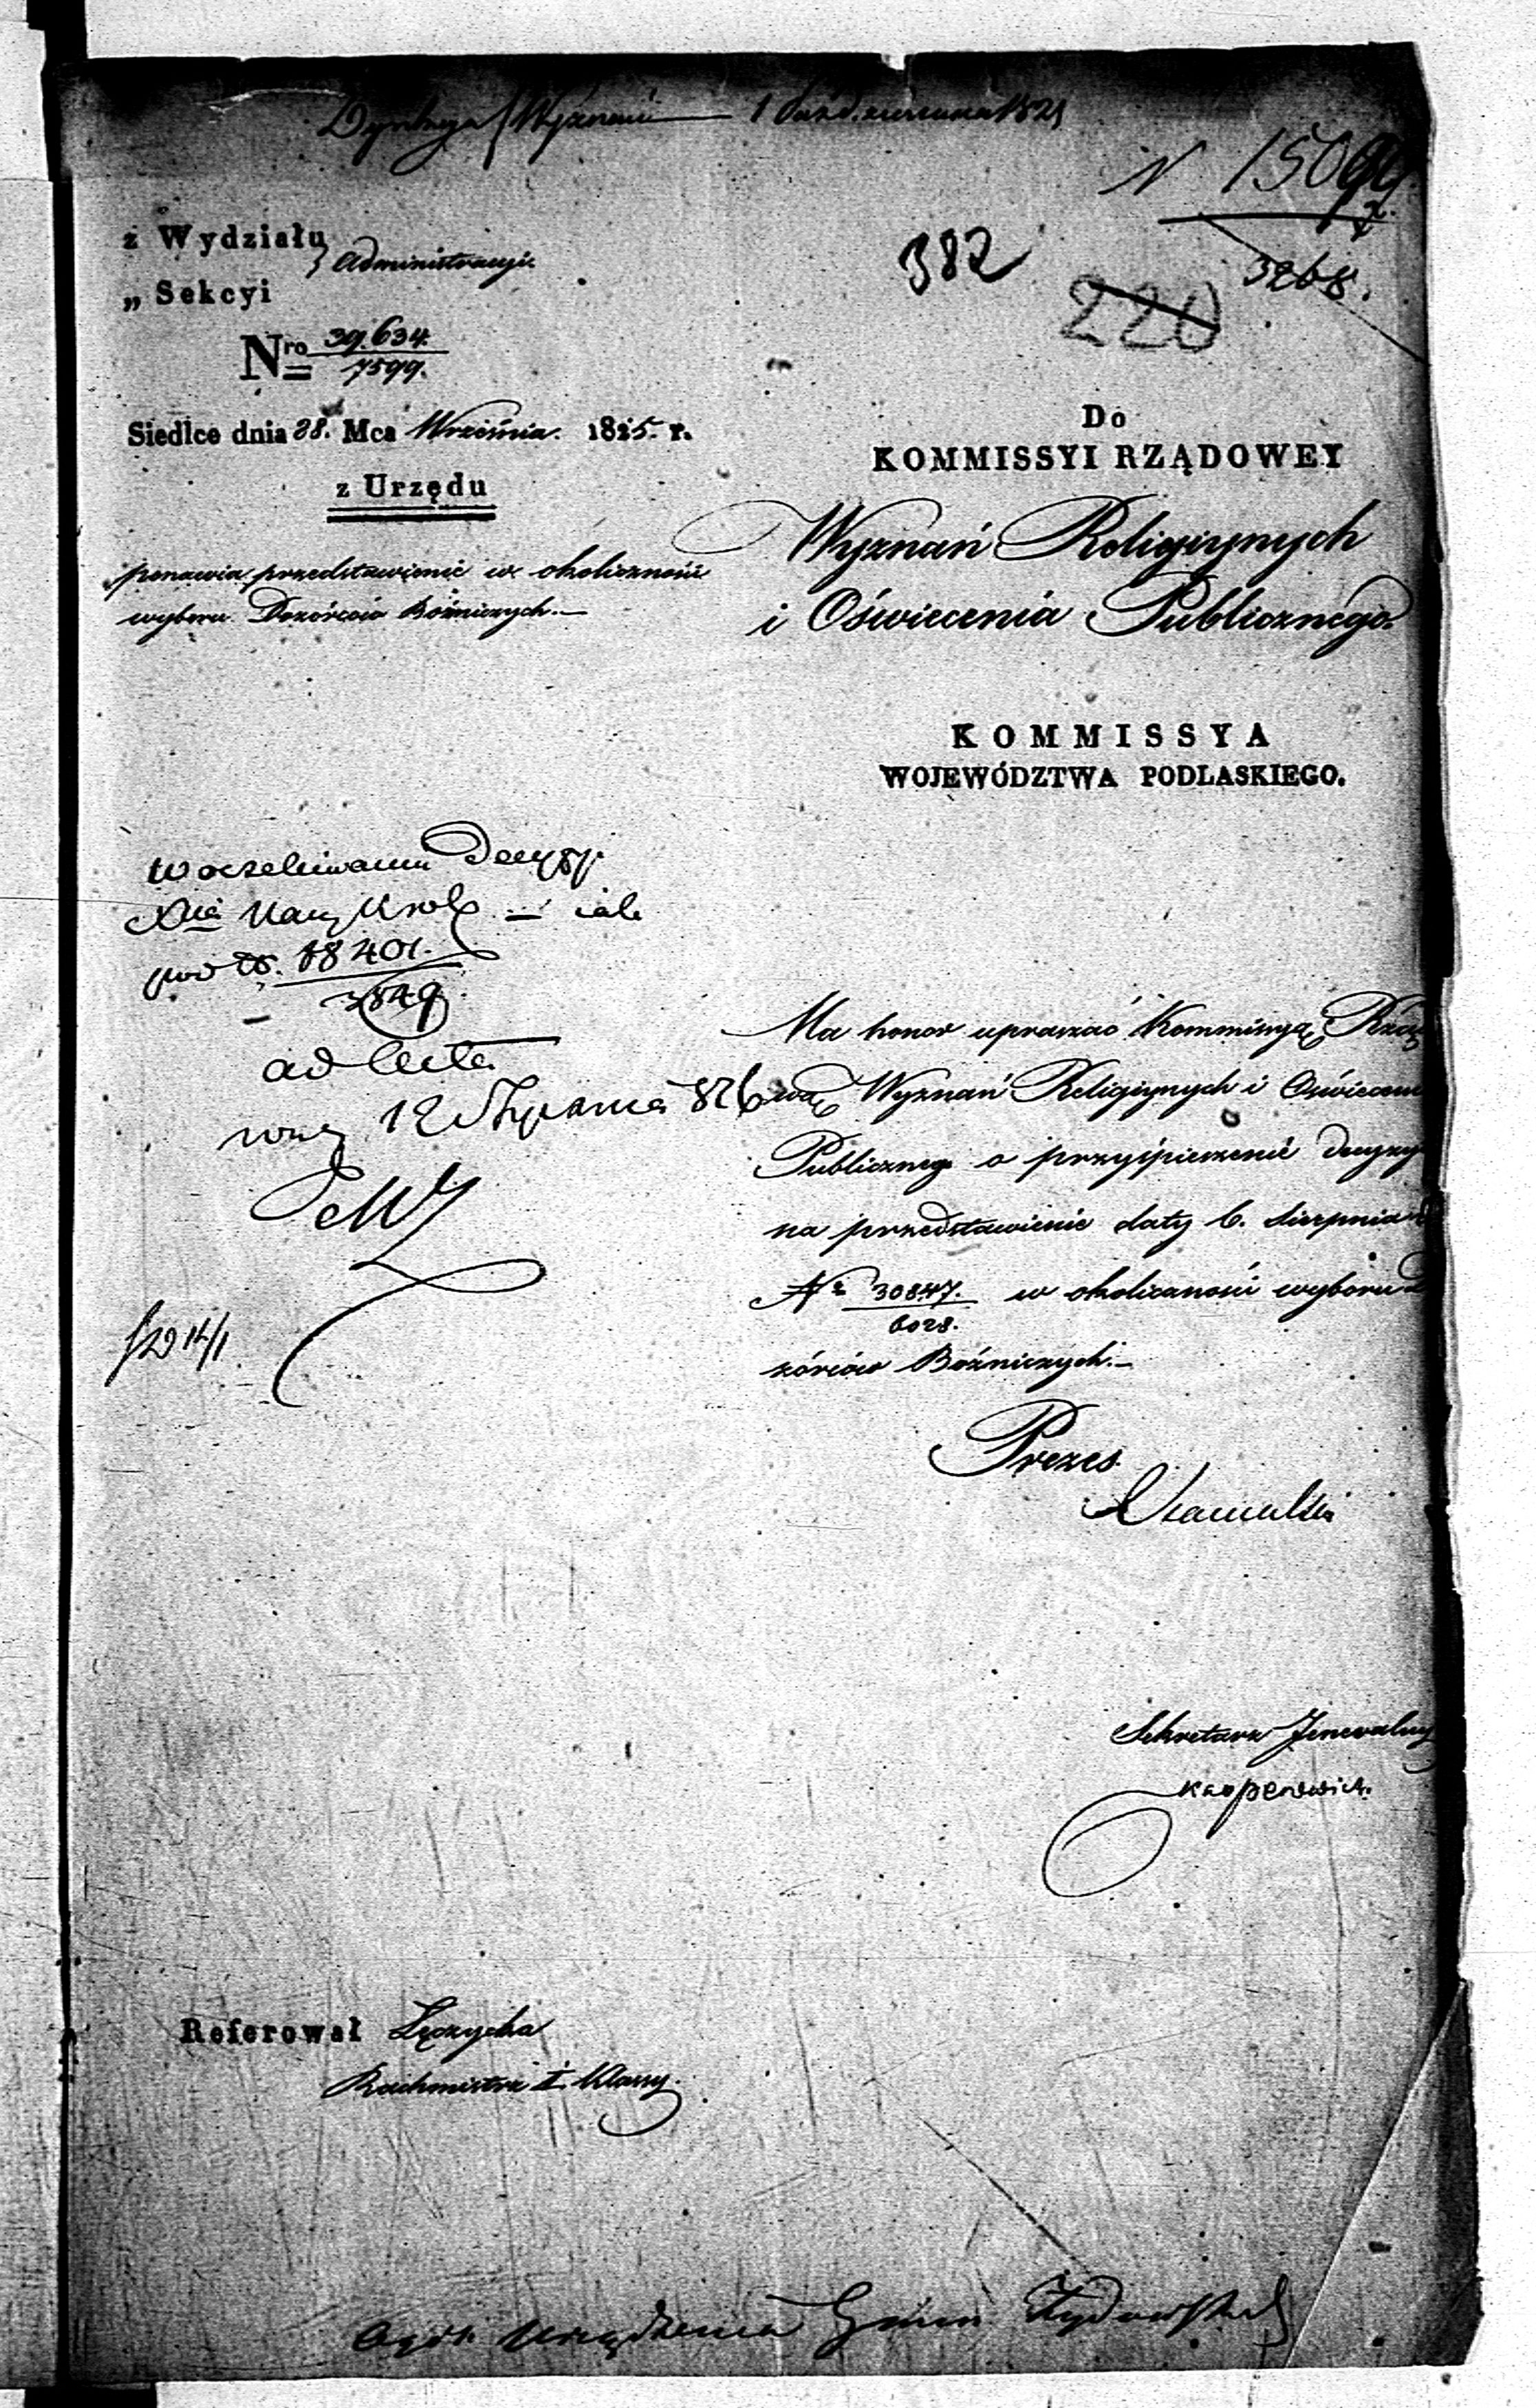 Wyznań 1 Października 1825
N 15099
3268.
382
220
z Wydziału
Administracyi
„ Sekcyi
Nro 39.634.
7599.
Siedlce dnia 28. Mca Września. 1825. r.
z Urzędu
ponawia przedstawienie w okoliczności
wyboru Dozorców Bóżniczych.—
Do
KOMMISSYI RZĄDOWEY
Wyznań Religiynych
i Oświecenia Publicznego.
KOMMISSYA
WOJEWÓDZTWA PODLASKIEGO.
w oczekiwaniu Decyzyi
pod 18401.
3849
ad acta
12 Stycznia 826
Ma honor upraszać Kommissyą Rzą
wą Wyznań Religiynych i Oświeceni
Publicznego o przyśpieszenie decyzyi
na przedstawienie daty 6. Sierpnia
No 30847. w okoliczności wyboru
6028.
zórców Bóżniczych.—
Prezes
Sekretarz Jeneralny
Referował Łęczycka
Rachmistrz I. Klassy.
Urządzenia Gmin Żydowskich